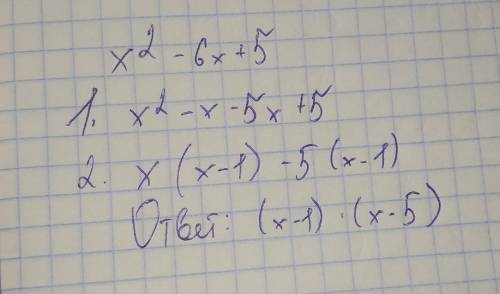 x² - 6x + 5
1. x² - x - 5x + 5
2. x (x-1) - 5 (x-1)
Ответ: (x-1) · (x-5)